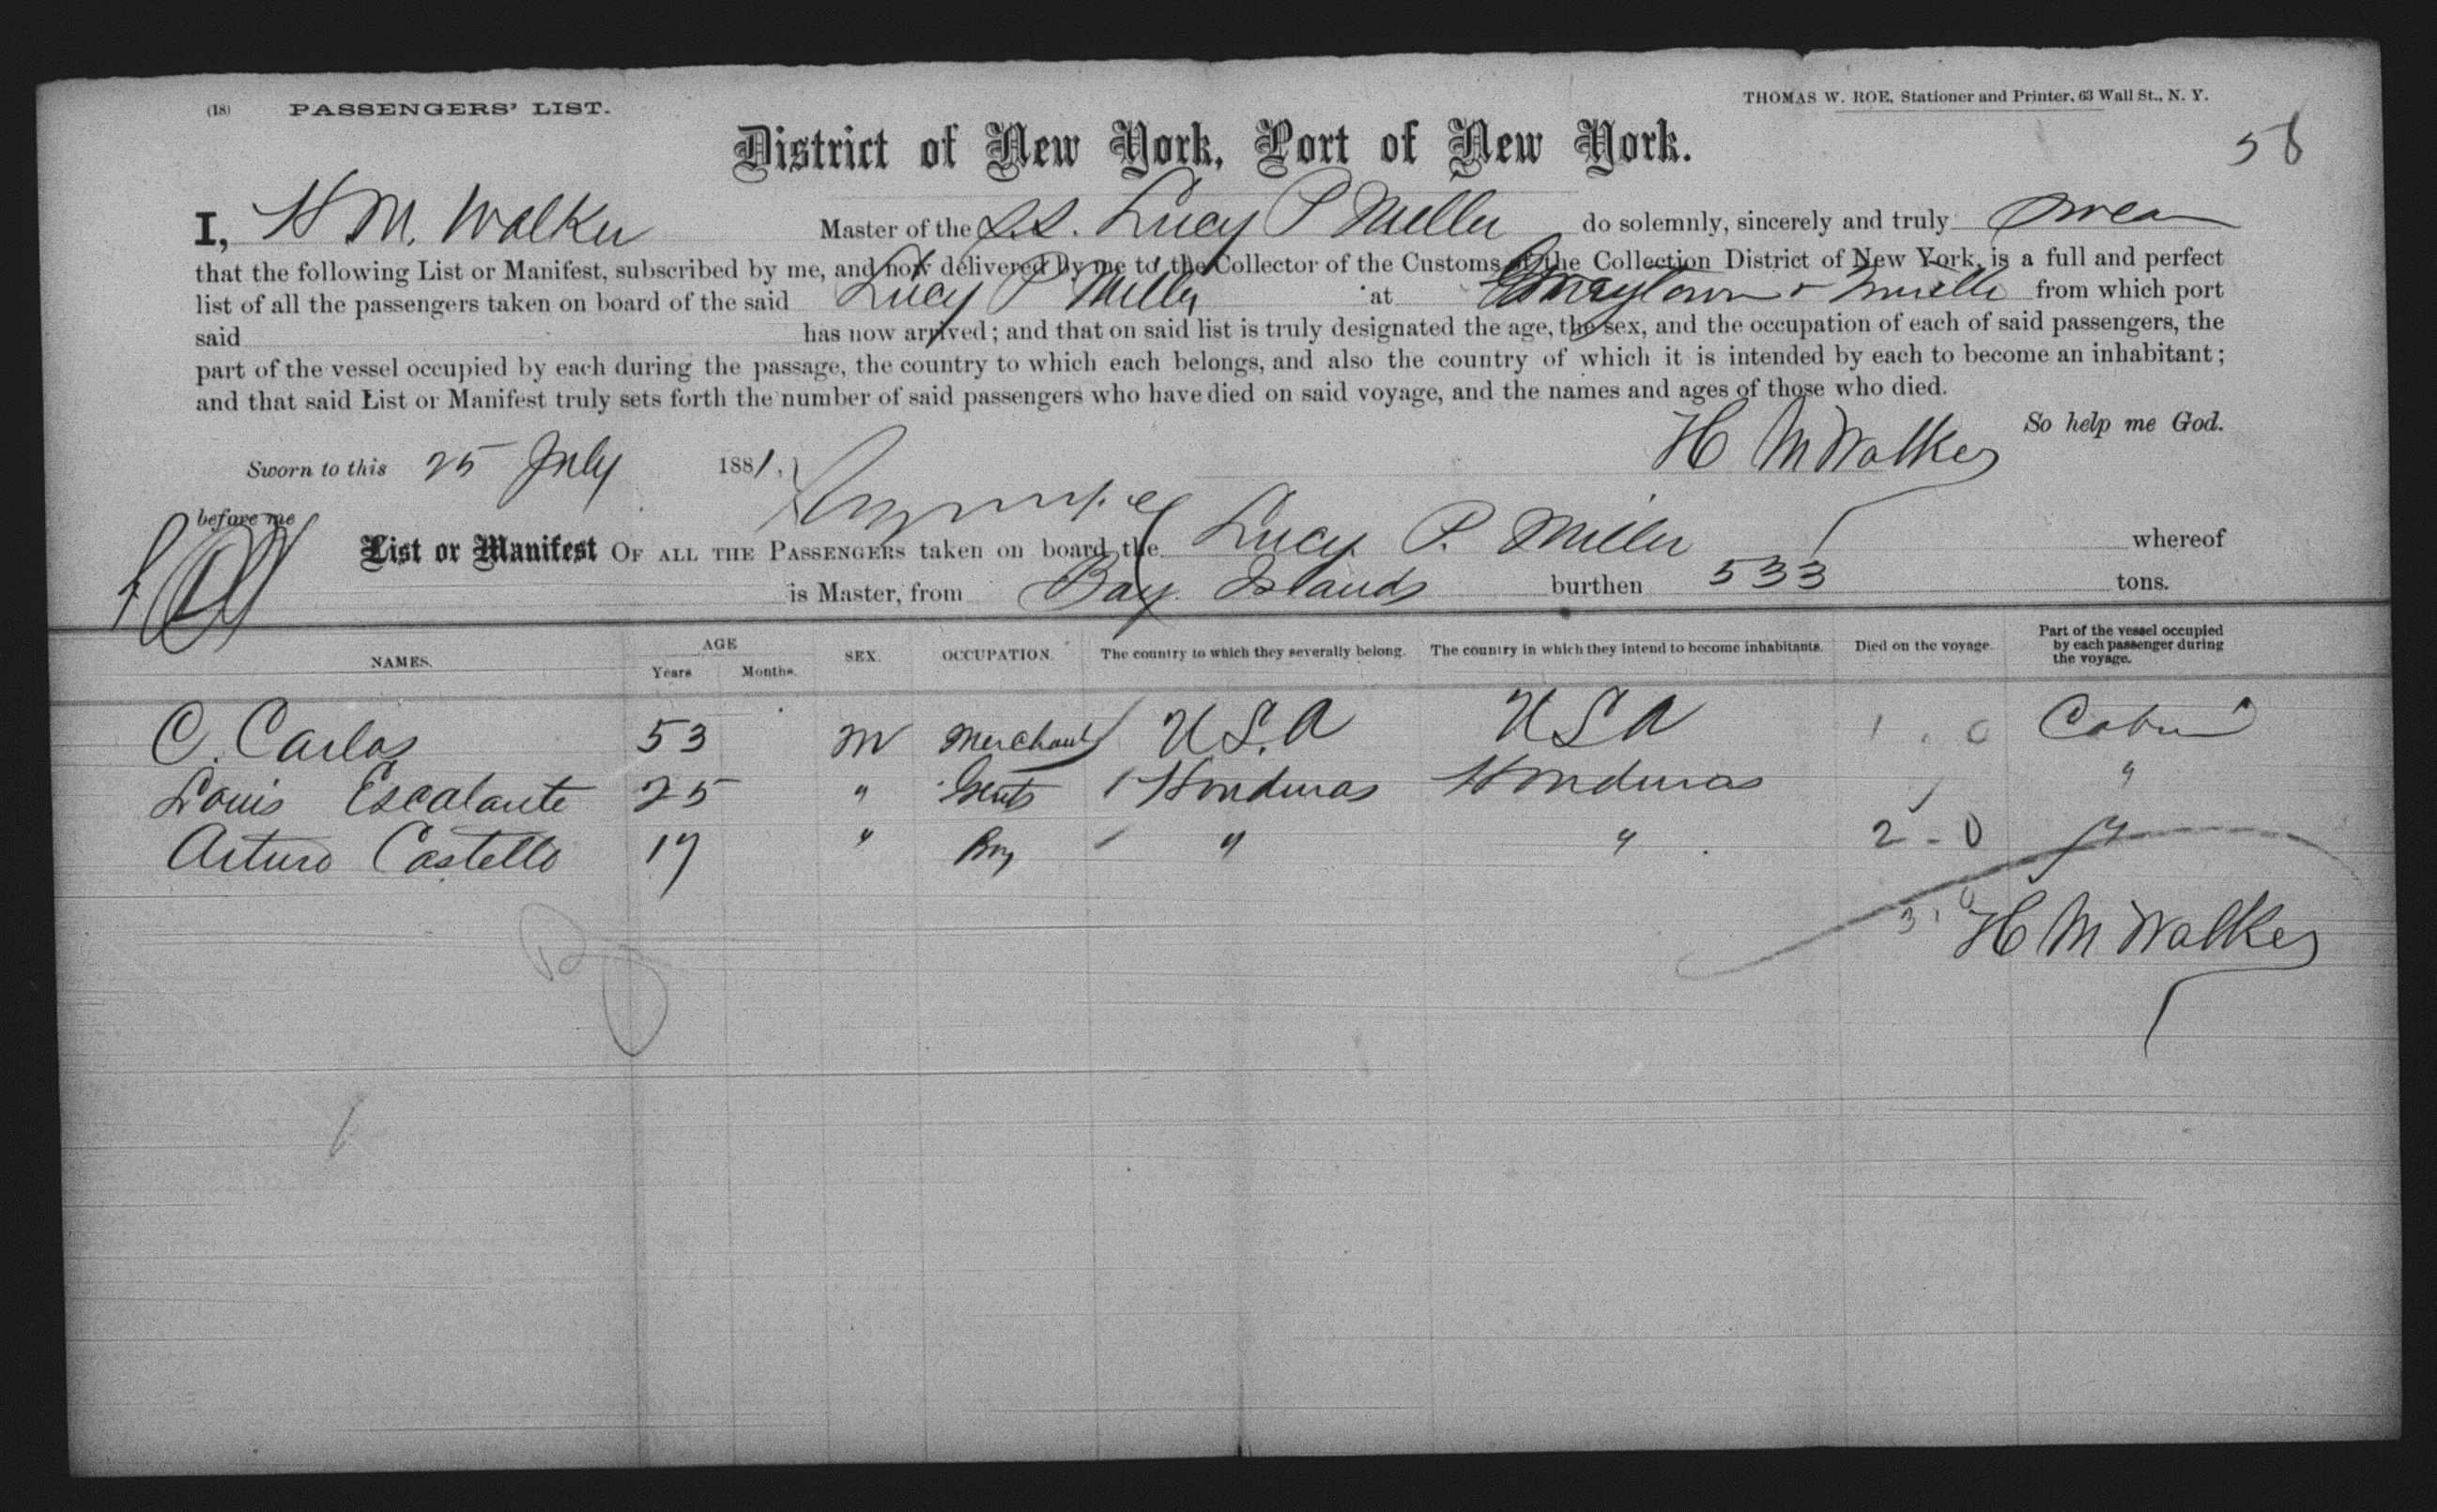 (18) PASSENGERS' LIST.
THOMAS W. ROE, Stationer and Printer, 63 Wall St., N. Y.
58
District of New York, Port of New York.
I, H M. Walker Master of the S.S. Lucy P Miller do solemnly, sincerely and truly swear
that the following List or Manifest, subscribed by me, and now delivered by me to the Collector of the Customs of the Collection District of New York, is a full and perfect
list of all the passengers taken on board of the said Lucy P Miller at from which port
said has now arrived; and that on said list is truly designated the age, the sex, and the occupation of each of said passengers, the
part of the vessel occupied by each during the passage, the country to which each belongs, and also the country of which it is intended by each to become an inhabitant;
and that said List or Manifest truly sets forth the number of said passengers who have died on said voyage, and the names and ages of those who died.
So help me God.
Sworn to this 25 July 1881, H M Walker
before me
List or Manifest OF ALL THE PASSENGERS taken on board the Lucy P. Miller whereof
is Master, from Bay Islands burthen 533 tons.
NAMES. AGE Years Months. SEX. OCCUPATION. The country to which they severally belong. The country in which they intend to become inhabitants. Died on the voyage. Part of the vessel occupied by each passenger during the voyage.
C. Carlos 53 M Merchant / U.S.A U S A 1 . 0 Cabin
Louis Escalante 25 " Gents / Honduras Honduras "
Arturo Castello 17 " Boy / " " 2 - 0 "
3. 0
H M Walker